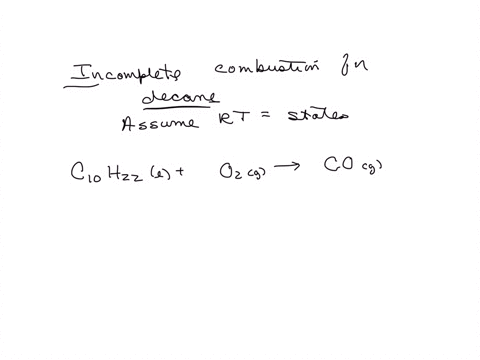 Incomplete combustion for
decane
Assume RT = states
C₁₀H₂₂ (l) + O₂ (g) → CO (g)